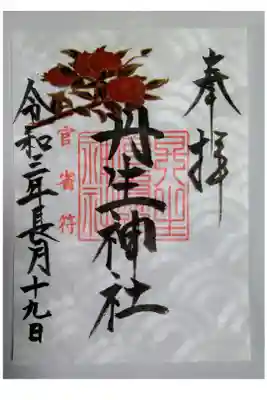 奉拝
丹生神社
官省符
令和三年長月十九日